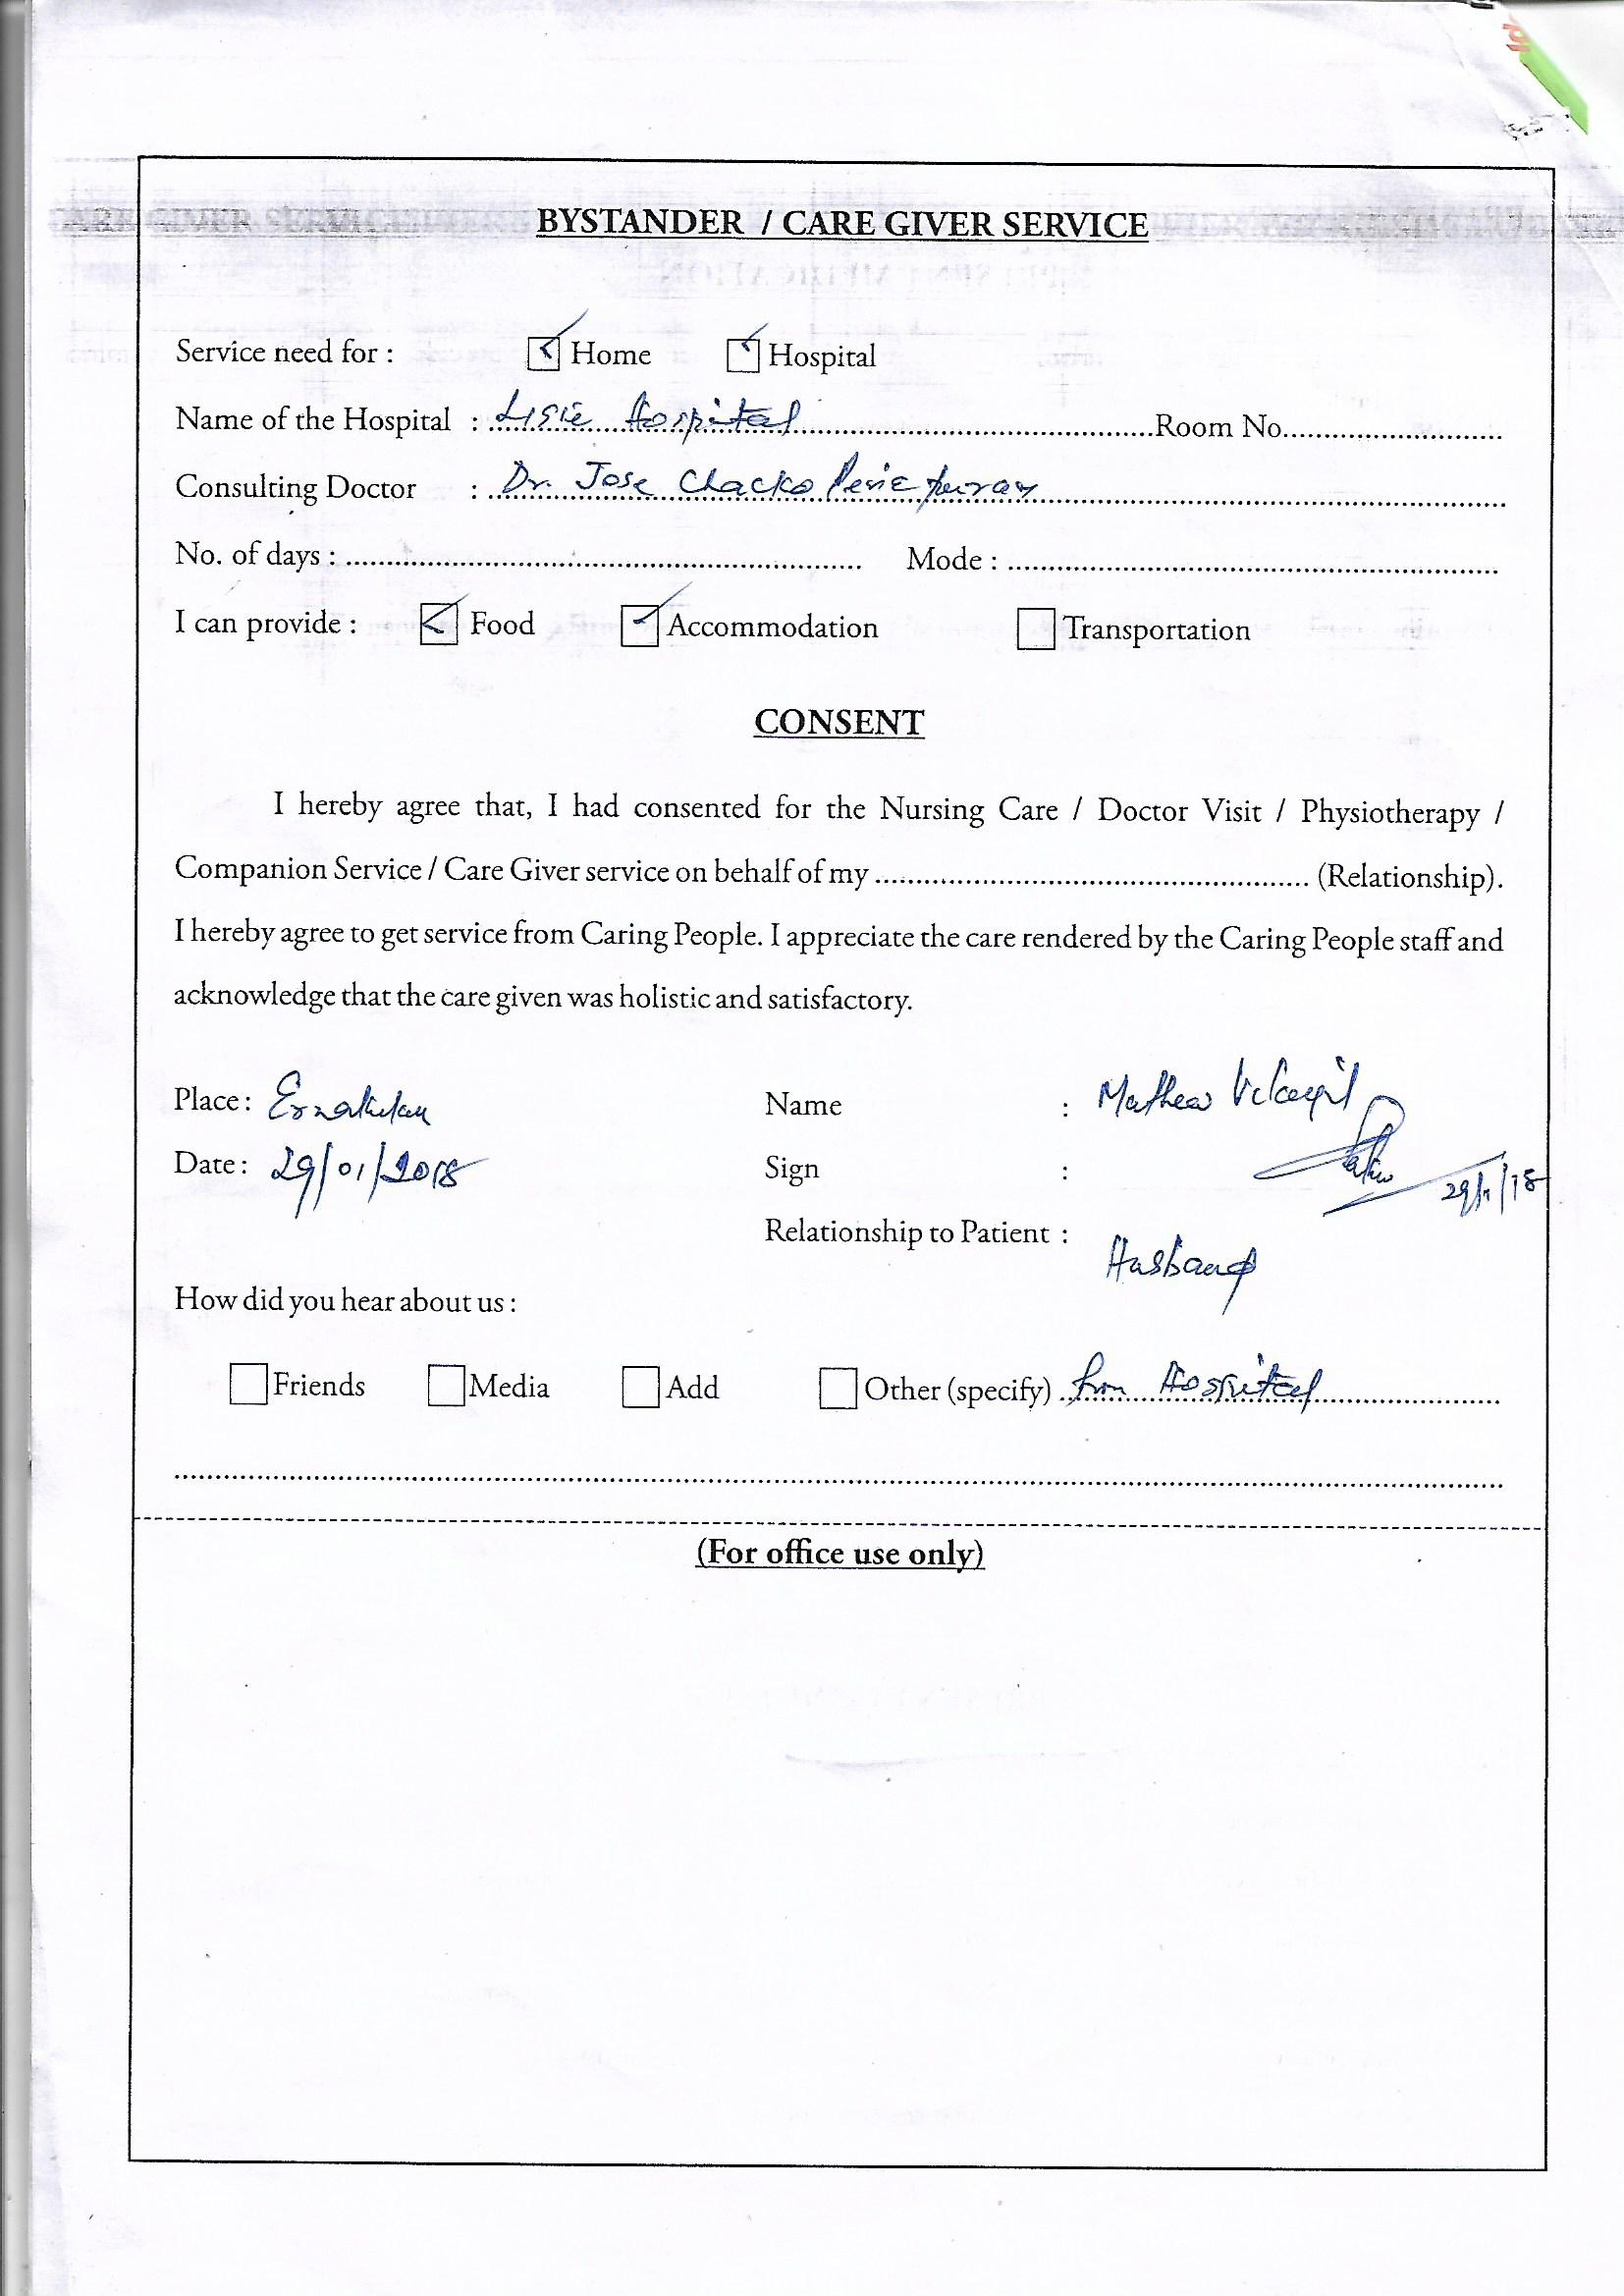 BYSTANDER / CARE GIVER SERVICE
Service need for : Home Hospital
Name of the Hospital : Lisie Hospital Room No.
Consulting Doctor : Dr. Jose Chacko
No. of days : Mode :
I can provide : Food Accommodation Transportation
CONSENT
I hereby agree that, I had consented for the Nursing Care / Doctor Visit / Physiotherapy /
Companion Service / Care Giver service on behalf of my (Relationship).
I hereby agree to get service from Caring People. I appreciate the care rendered by the Caring People staff and
acknowledge that the care given was holistic and satisfactory.
Place: Ernakulam Name : Mathew
Date: 29/01/2018 Sign : 29/1/18
Relationship to Patient : Husband
How did you hear about us :
Friends Media Add Other (specify) from Hospital
(For office use only)